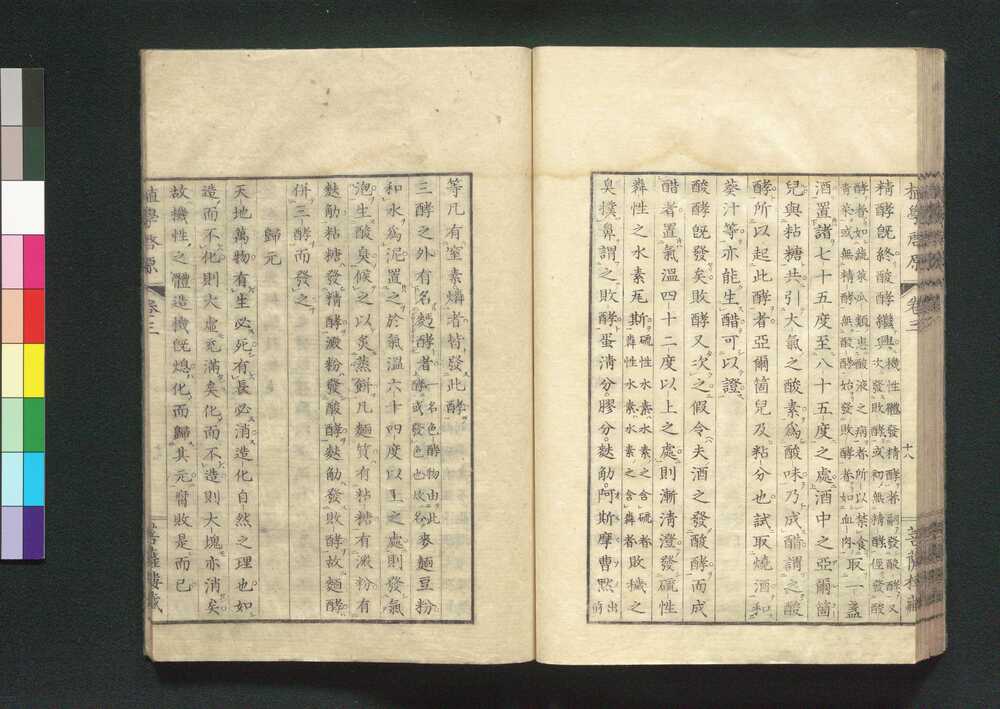 植學啓原 卷三 十八 菩薩樓藏
精酵既終酸酵繼興機性體發精酵者嗣發酸酵又
次發敗酵或初無精酵徑發酸
酵者如蔬菜瓜類患酸液之病者所以禁食
青菜或無精酵無酸酵始發敗酵者如血肉取一盞
酒置諸七十五度至八十五度之處酒中之亞爾箇
兒與粘糖共引大氣之酸素爲酸味乃成醋謂之酸
酵所以起此酵者亞爾箇兒及粘分也試取燒酒和
蔘汁等亦能生醋可以證
酸酵既發矣敗酵又次之假令夫酒之發酸酵而成
醋者置氣溫四十二度以上之處則漸清澄發硫性
糞性之水素瓦斯硫性水素水素之含硫者
糞性水素水素之含糞者敗穢之
臭撲鼻謂之敗酵蛋淸分膠分麩觔阿斯摩曹㷔出
等凡有窒素燐者皆發此酵
三酵之外有名麪酵者一名色酵物由此
酵或發色也故名麥麵豆粉
和水爲泥置之於氣溫六十四度以上之處則發氣
泡生酸臭候之以炙蒸餠凡麵質有粘糖有澱粉有
麩觔粘糖發精酵澱粉發酸酵麩觔發敗酵故麵酵
併三酵而發之
歸元
天地萬物有生必死有長必消造化自然之理也如
造而不化則大虛充滿矣化而不造則大塊亦消矣
故機性之體造機既熄化而歸其元腐敗是而已
植學啓原 卷三 菩薩樓藏